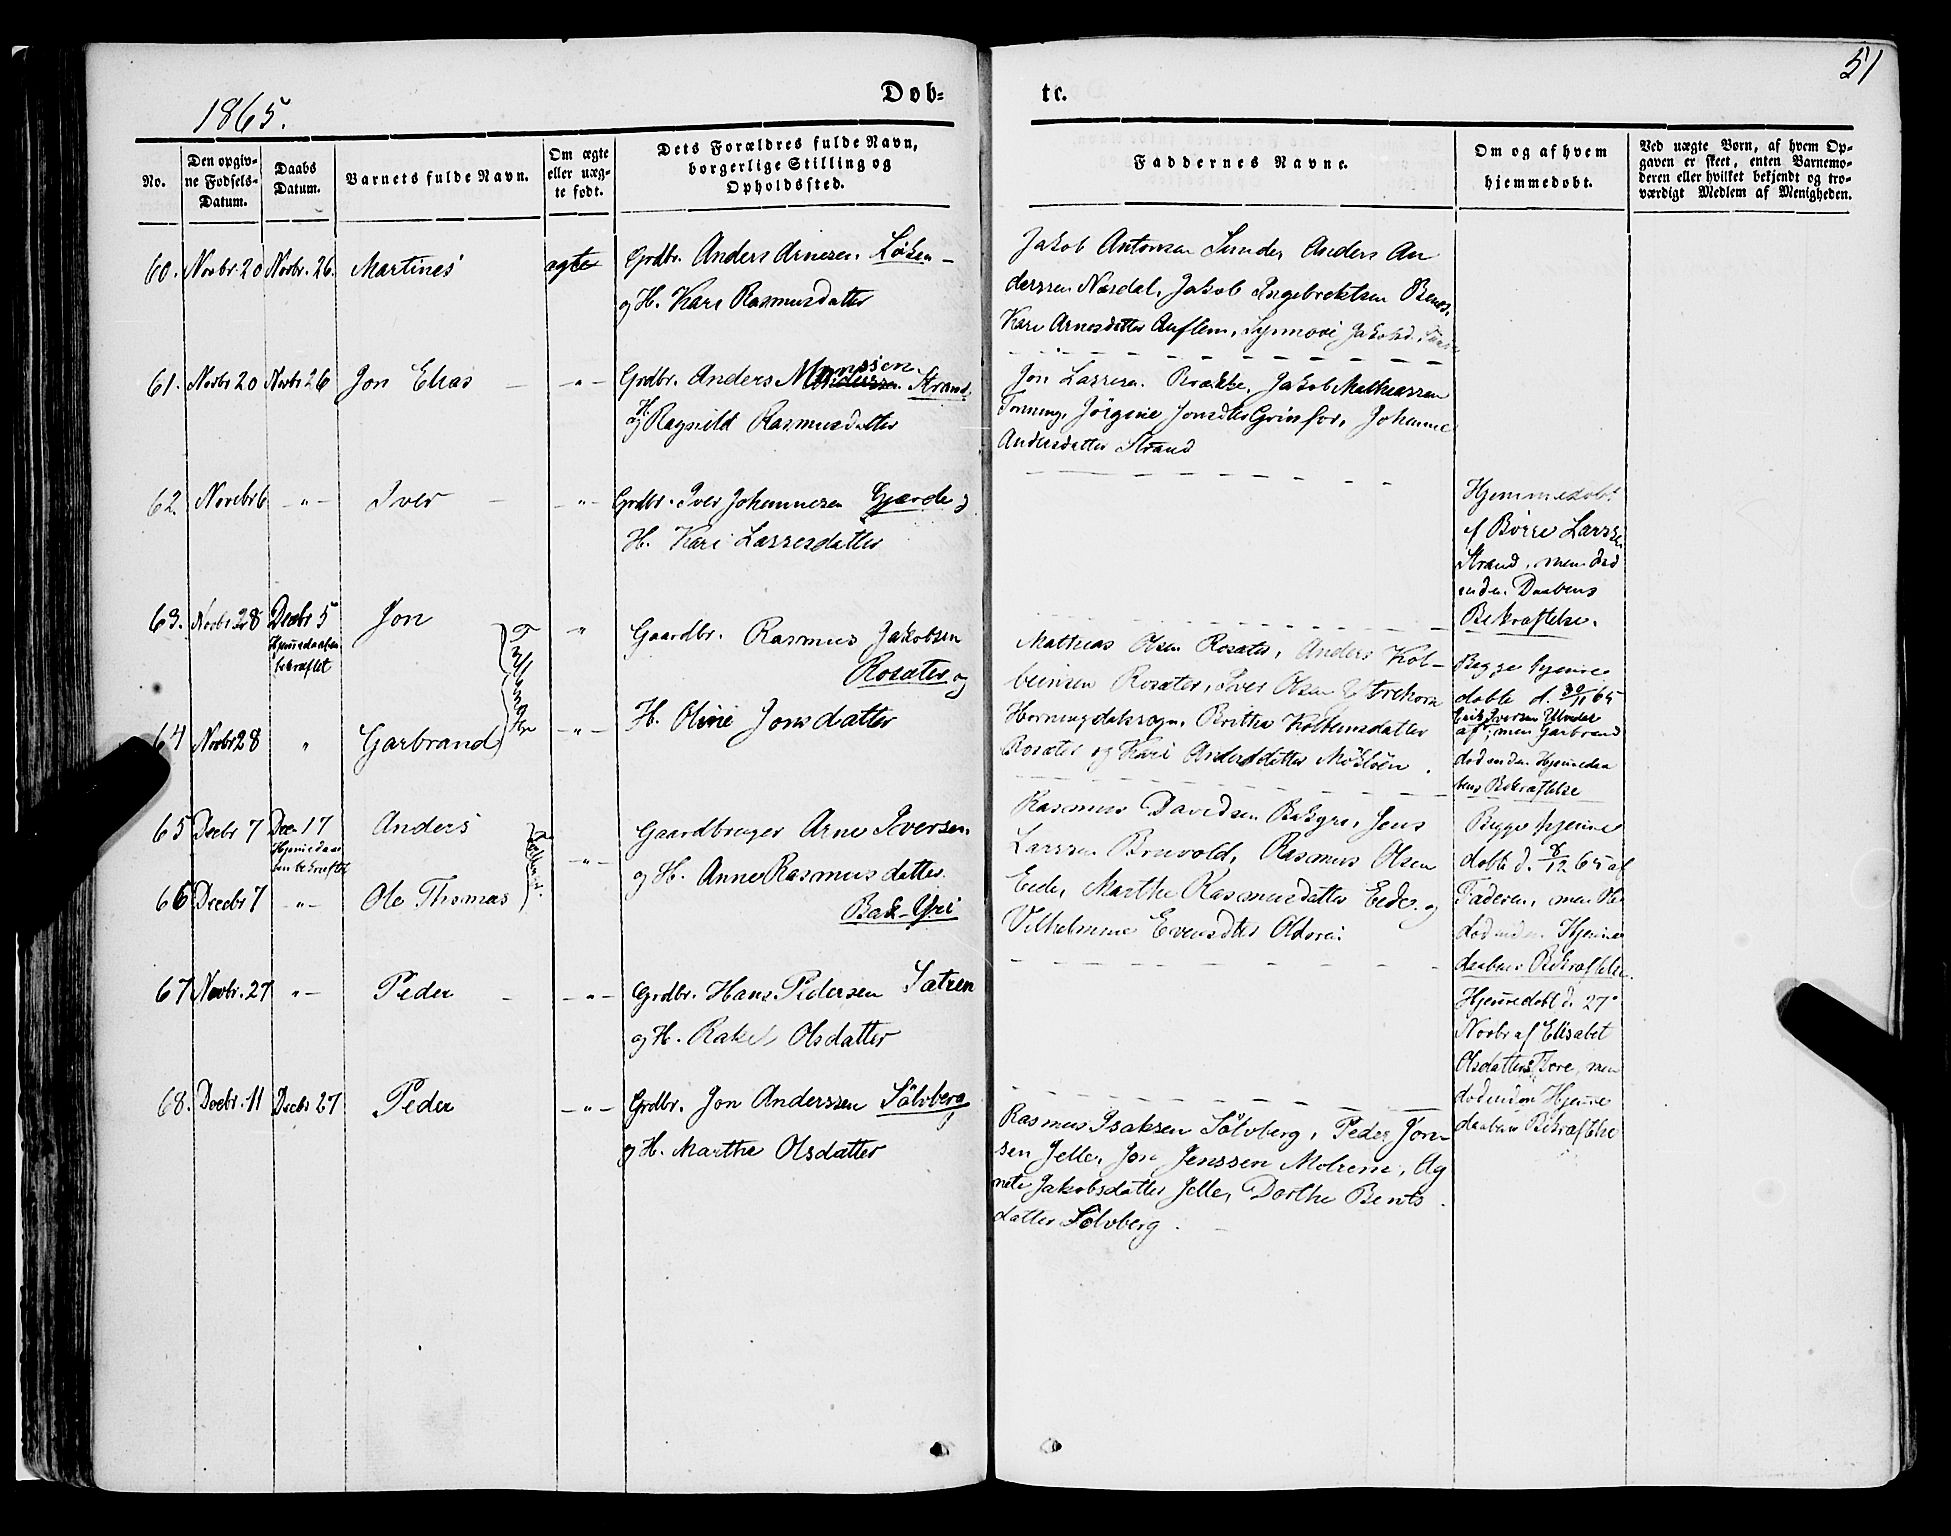 51
1865.
Døb-
te.
No.
Den opgiv-
ne Fødsels-
Datum.
Daabs
Datum.
Barnets fulde Navn.
Om ægte
eller uæg-
te født.
Dets Forældres fulde Navn,
borgerlige Stilling og
Opholdssted.
Faddernes Navne.
Om og af hvem
hjemmedøbt.
Ved uægte Børn, af hvem Op-
gaven er skeet, enten Barnemo-
deren eller hvilket bekjendt og tro-
værdigt Medlem af Menigheden.
60. Novbr. 20 Novbr. 26. Martines ægte Grdbr. Anders Arnesen Løken
og H. Kari Rasmusdatter
Jakob Antonsen Sunde, Anders An
derssen Nesdal, Jakob Ingebrektsen Benes,
Kari Arnesdatter Auflem, Synnøve Jakobsd.
61. Novbr 20 Novbr 26 Jon Elias - " - Grdbr. Anders Monssen Strand
og H. Ragnild Rasmusdatter
Jon Larssen Brække, Jakob Mathiassen
Tonning, Jørgine Jonsdtr Grinfor, Johanne
Andersdatter Strand
62. Novebr 6 - " - Iver - " - Grdbr. Iver Johannesen Gjærde og
H. Kari Larsesdatter
Hjemmedøbt
af Børre Larssen
Strand, men død
inden Daabens
Bekræftelse.
63. Novbr 28 Decbr 5 Jon " Gaardbr. Rasmus Jakobsen
Hjemedaaben
bekræftet
Rosæter og
64 Novbr 28 " Garbrand - " - H. Oline Jonsdatter
Tvillinger
Mathias Olsen Rosæter, Anders Kol-
beinsen Rosæter, Iver Olsen Ytrehorn
Horningdalsogn, Brithe Kolbensdatter
Rosæter og Kari Andersdatter Mökløen.
Begge hjemme
døbte d. 30/11 65
af Erik Iversen
men Garbrand
død inden Hjemmedaa
bens Bekræftelse
65 Decbr 7 Dec 17 Anders - " - Gaardbruger Arne Iversen
Hjemedaa
ben bekræftet
66 Decebr 7 - " - Ole Thomas og H. Anne Rasmusdatter
Bak-Yri
Rasmus Davidsen Bakyri, Jens
Larssen Bruvold, Rasmus Olsen
Eede, Marthe Rasmusdatter Eede og
Vilhelmine Evensdtr Oldøre.
Begge hjemme
døbte d. 8/12 65 af
Faderen, men Ole
død inden Hjemme
daabens Bekræftelse.
67 Novbr. 27 " - Peder - - " - Grdbr. Hans Pedersen Sætren
og H. Rakel Olsdatter
Hjemmedøbt d. 27.
Novbr af Elisabet
Olsdatter Flore, men
død inden Hjemme
daabens Bekræftelse
68. Decbr. 11 Decbr 27 Peder - " - Grdbr. Jon Anderssen Sölvberg
og H. Marthe Olsdatter
Rasmus Isaksen Sölvberg, Peder Jon-
sen Jelle, Jon Jenssen Melheim, Ag
nete Jakobsdatter Jelle, Dorthe Bents
datter Sölvberg.